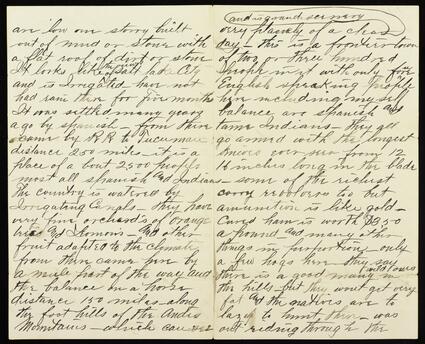 are low one story built
out of mud or stone with
a flat roof of dirt or stone
It looks like Salt Lake City
and is Irrigated have not
had rain there for five months
It was settled many years
ago by spanish - from there
I came by R R to Tucuman
distance 250 miles. It is a
place of about 2500 people
most all spanish and Indians
The country is watered by
Irrigating Canals - they have
very fine orchards of orange
trees and Lemons - and other
fruit adapted to the climate
from there came here by
a mule part of the way and
the balance on a horse
distance 150 miles - along
the foot hills of the Andes
Mountains - which can see
and is grand scenery
very plainly of a clear
day - this is a frontier town
of two or three hundred
people most with only five
English speaking people
here including myself
balance are spanish and
tame Indians - they go
go armed with the longest
knives ever seen from 12
inches long in the blade
- some of the richest
carry revolvers too but
amunition is like gold -
Cured ham is worth
a pound and many other
things in proportion - only
a few hogs here they say
there is a good many wild ones
the hills - but they wont get very
fat and the natives are to
lazy to hunt them - was
out riding through the